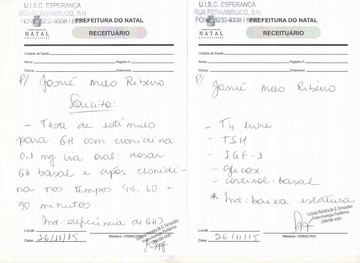 U.I.S.C. ESPERANÇA
RUA PERNAMBUCO, S/N
PREFEITURA DO NATAL
NATAL
RECEITUÁRIO
Unidade de Saúde
Nome
Registro nº
Clínica
Enfermaria
P/ Josué Melo Ribeiro
Solicito:
- Teste de estímulo
para GH com clonidina
0,1 mg via oral: dosar
GH basal e após clonidi-
na nos tempos 45, 60 e
90 minutos.
Ind: deficiência de GH?
Local
Data 26/11/15
Médico - CRM/CRO
U.I.S.C. ESPERANÇA
RUA PERNAMBUCO, S/N
PREFEITURA DO NATAL
NATAL
RECEITUÁRIO
Unidade de Saúde
Nome
Registro nº
Clínica
Enfermaria
P/ Josué Melo Ribeiro
- T4 livre
- TSH
- IGF-1
- glicose
- cortisol basal
* Ind: baixa estatura
Local
Data 26/11/15
Médico - CRM/CRO